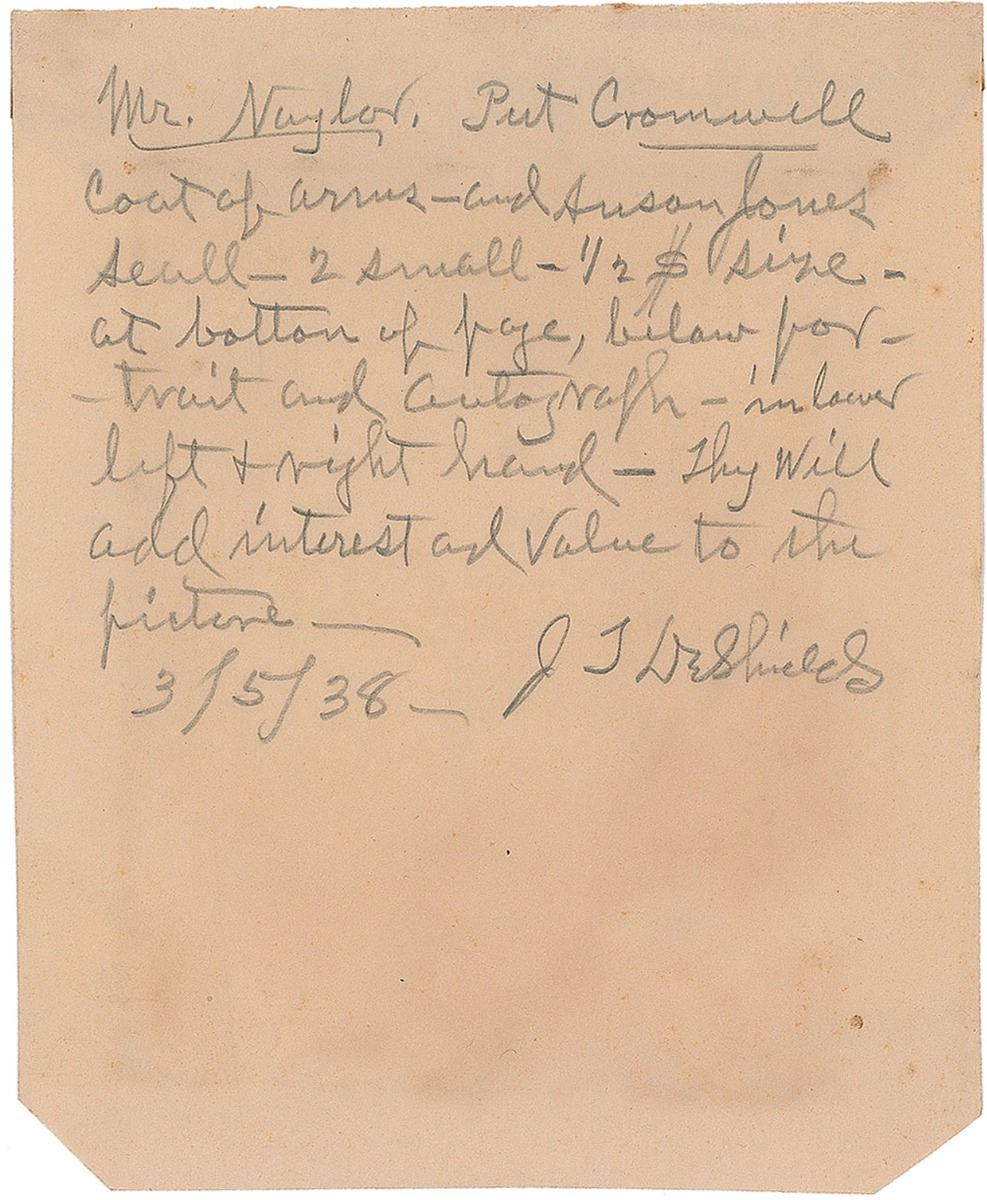 Mr. Naylor. Put Cromwell
Coat of arms - and Anson Jones
Seall - 2 small - 1/2 $ size -
at bottom of page, below por-
- trait and autograph - in lower
left + right hand - Thy Will
add interest ad Value to the
picture —
3/5/38 — J T DeShields